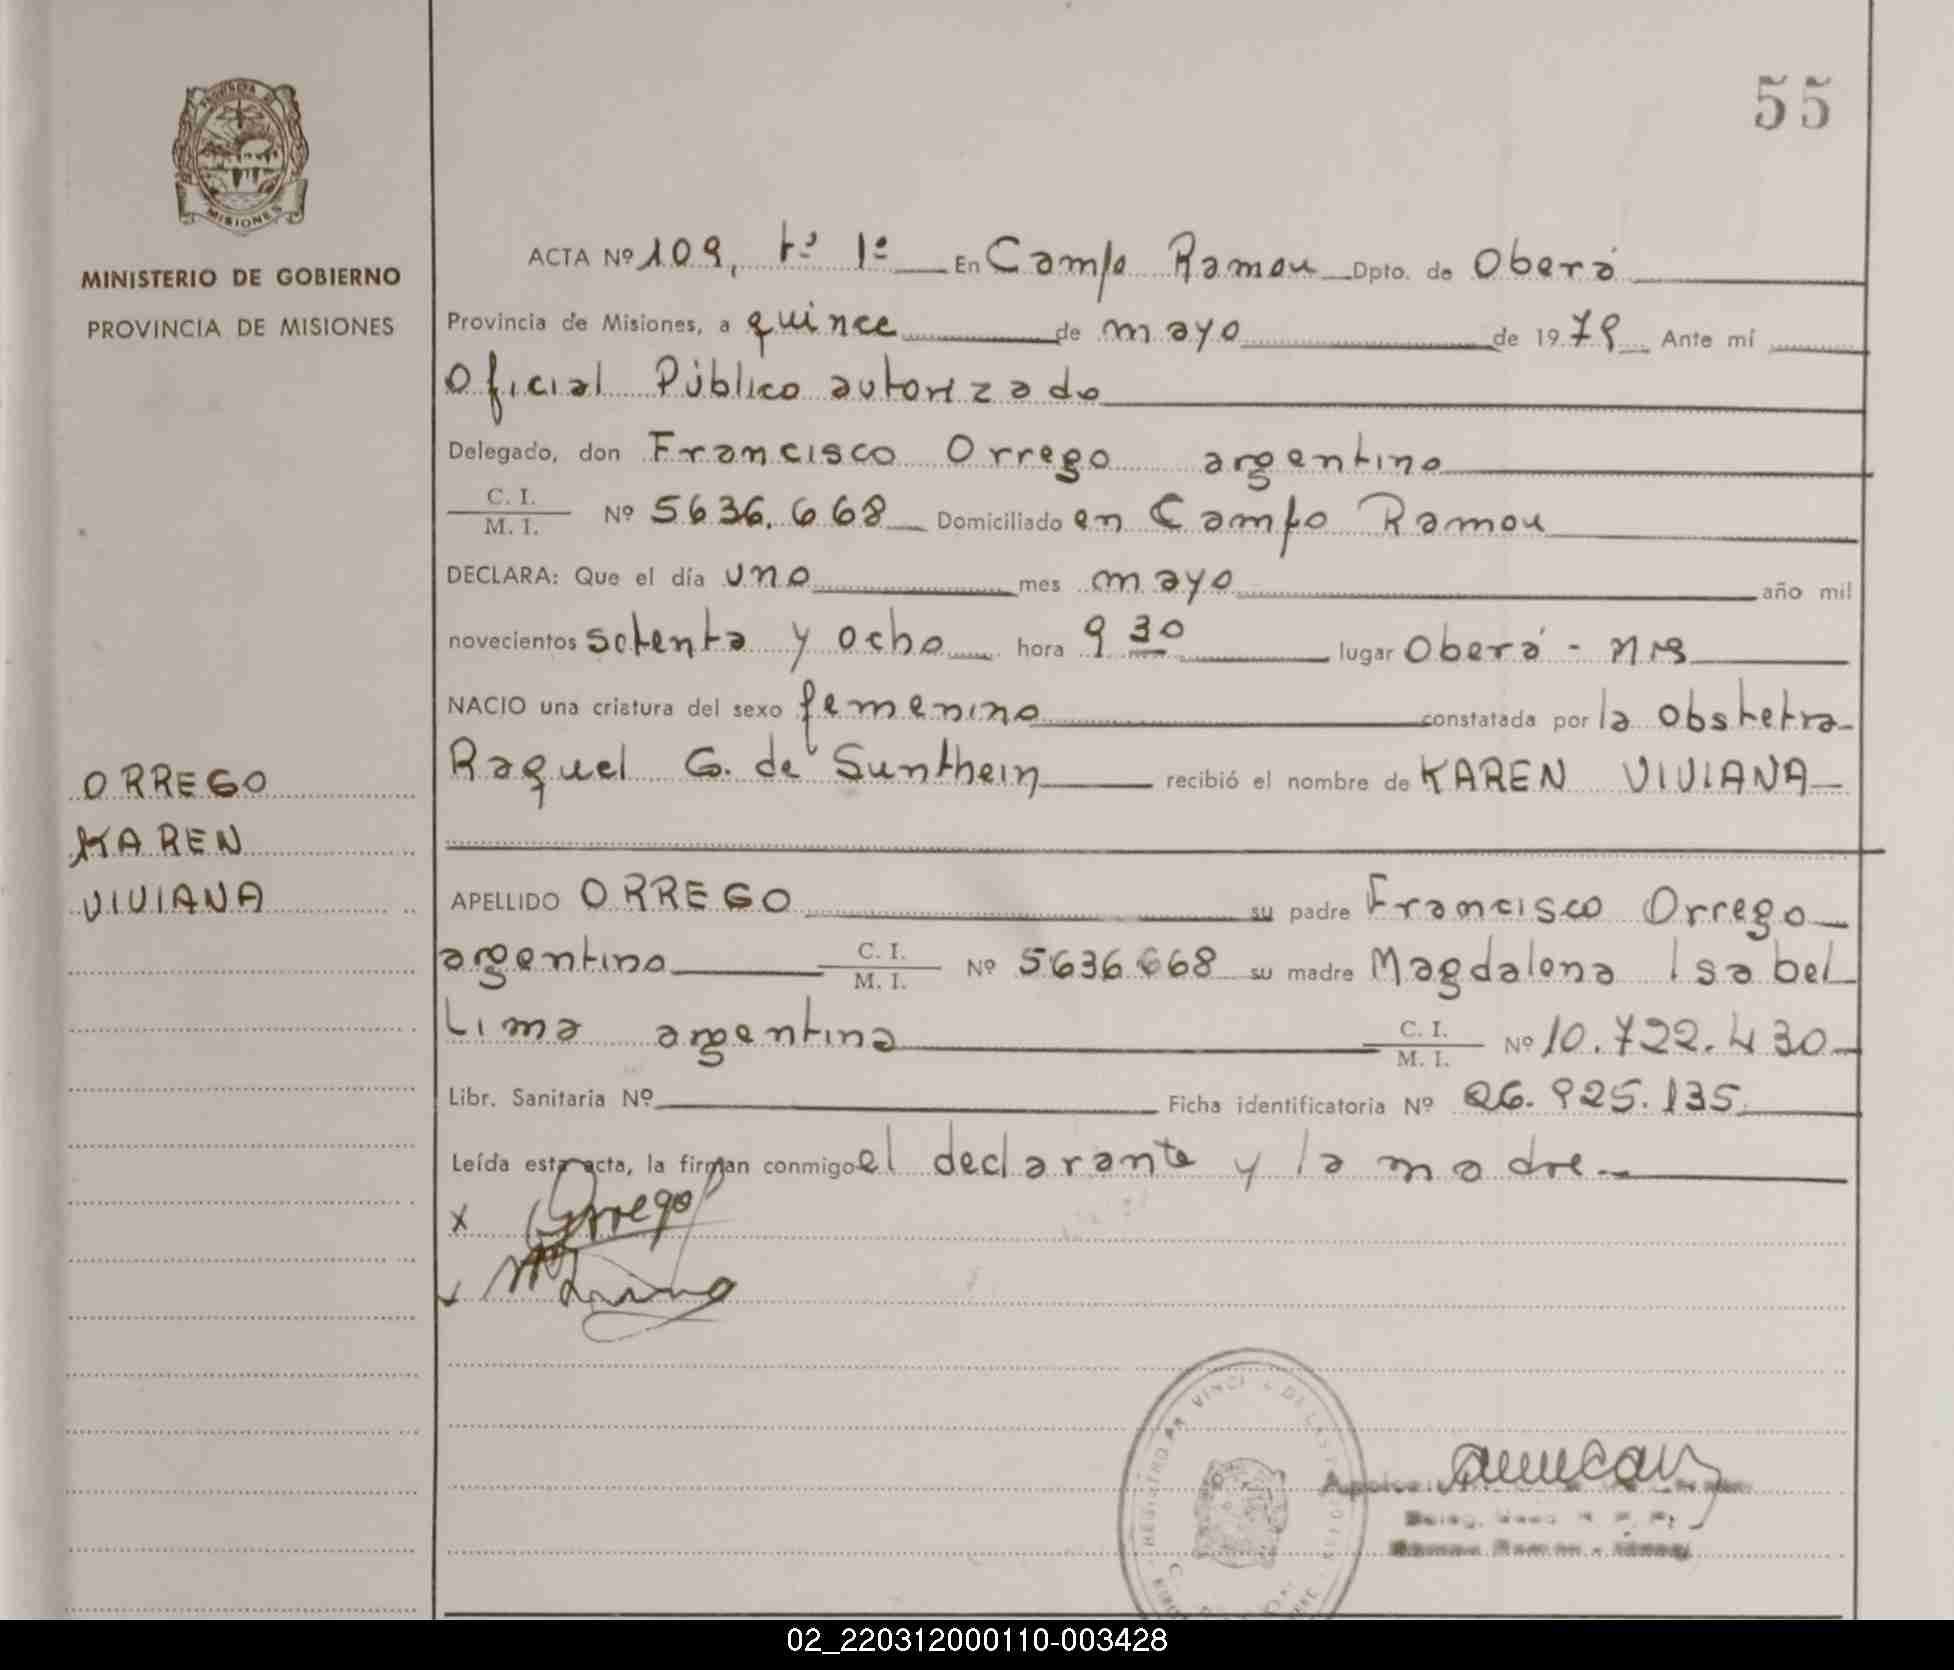 55
PROVINCIA DE
MISIONES
MINISTERIO DE GOBIERNO
PROVINCIA DE MISIONES
ACTA Nº 109, tº 1º En Campo Ramon Dpto. de Oberá
Provincia de Misiones, a quince de mayo de 1978 Ante mí
Oficial Público autorizado
Delegado, don Francisco Orrego argentino
C. I.
M. I.
Nº 5636.668 Domiciliado en Campo Ramon
DECLARA: Que el día uno mes mayo año mil
novecientos setenta y ocho hora 9 30 lugar Oberá - Mns
NACIO una criatura del sexo femenino constatada por la Obstetra
Raquel G. de Sunthein recibió el nombre de KAREN VIVIANA
ORREGO
KAREN
VIVIANA
APELLIDO ORREGO su padre Francisco Orrego
argentino C. I.
M. I.
Nº 5636668 su madre Magdalena Isabel
Lima argentina C. I.
M. I.
Nº 10.722.430
Libr. Sanitaria Nº Ficha identificatoria Nº 26.925.135
Leída esta acta, la firman conmigo el declarante y la madre
x Orrego
M Lima
02_220312000110-003428